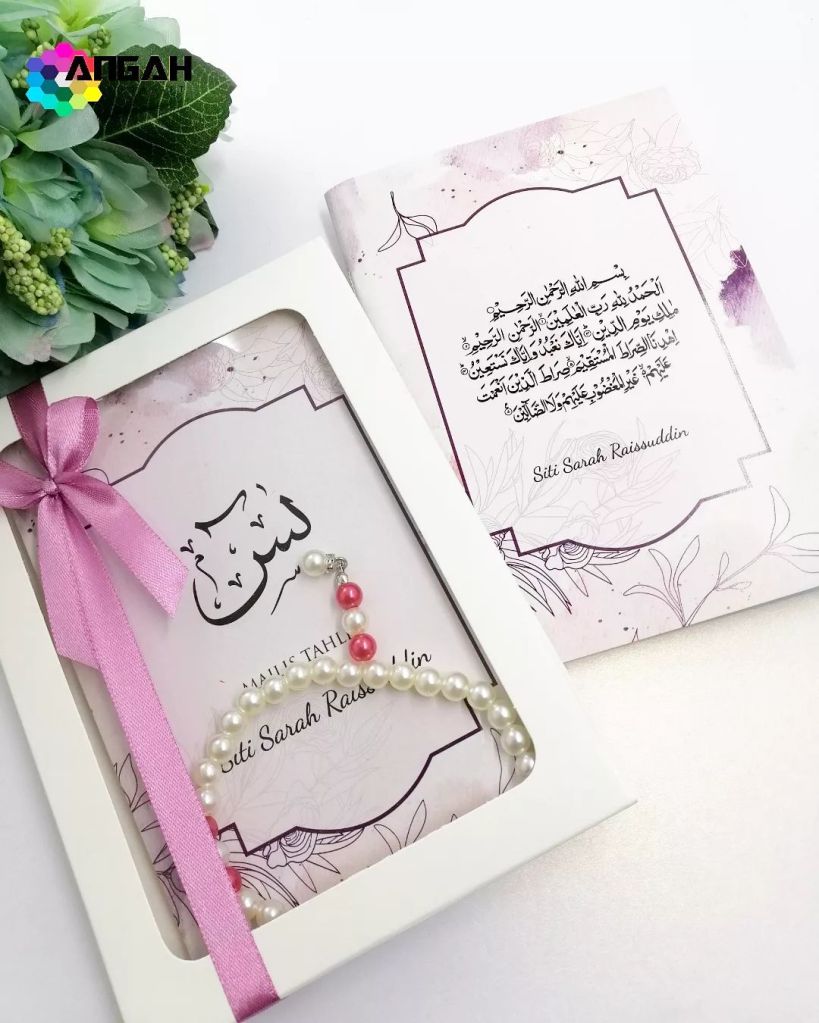 ANGAH
بِسْمِ اللهِ الرَّحْمٰنِ الرَّحِيْمِ
اَلْحَمْدُ لِلّٰهِ رَبِّ الْعٰلَمِيْنَ الرَّحْمٰنِ الرَّحِيْمِ
مٰلِكِ يَوْمِ الدِّيْنِ اِيَّاكَ نَعْبُدُ وَاِيَّاكَ نَسْتَعِيْنُ
اِهْدِنَا الصِّرَاطَ الْمُسْتَقِيْمَ صِرَاطَ الَّذِيْنَ اَنْعَمْتَ
عَلَيْهِمْ غَيْرِ الْمَغْضُوْبِ عَلَيْهِمْ وَلَا الضَّآلِّيْنَ
Siti Sarah Raissuddin
يس
MAJLIS TAHLI
Siti Sarah Raissuddin